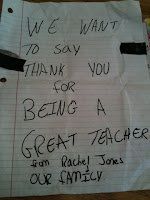 WE WANT
To say
THANK YOU
for
BEING A
GREAT TEACHER
from Rachel Jones
OUR FAMILY